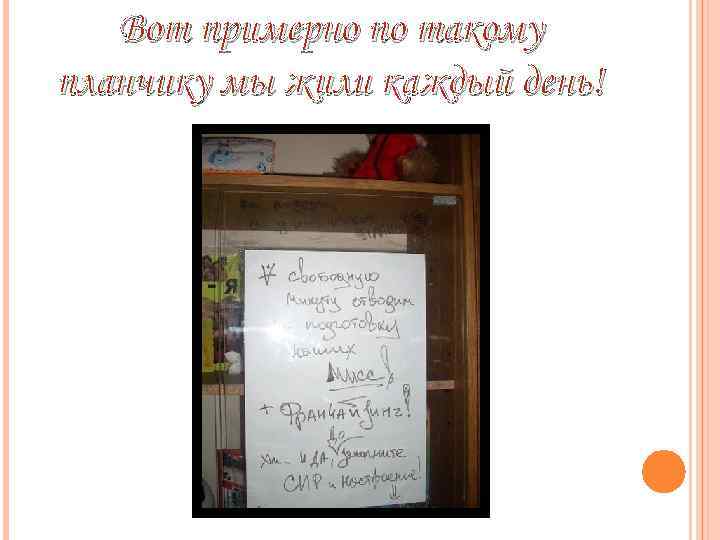 Вот примерно по такому
планчику мы жили каждый день!
свободную
минуту отводим
подготовку
наших
Мисс!
+ Франчайзинг!
до
Хм... и да, заполните
СИР и настроение!